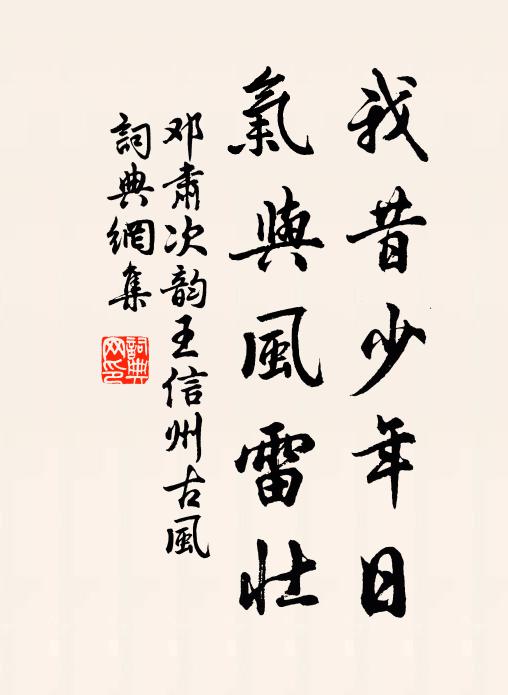 我昔少年日
氣與風雷壯
邓肅次韵王信州古風
詞典網集
詞典网印